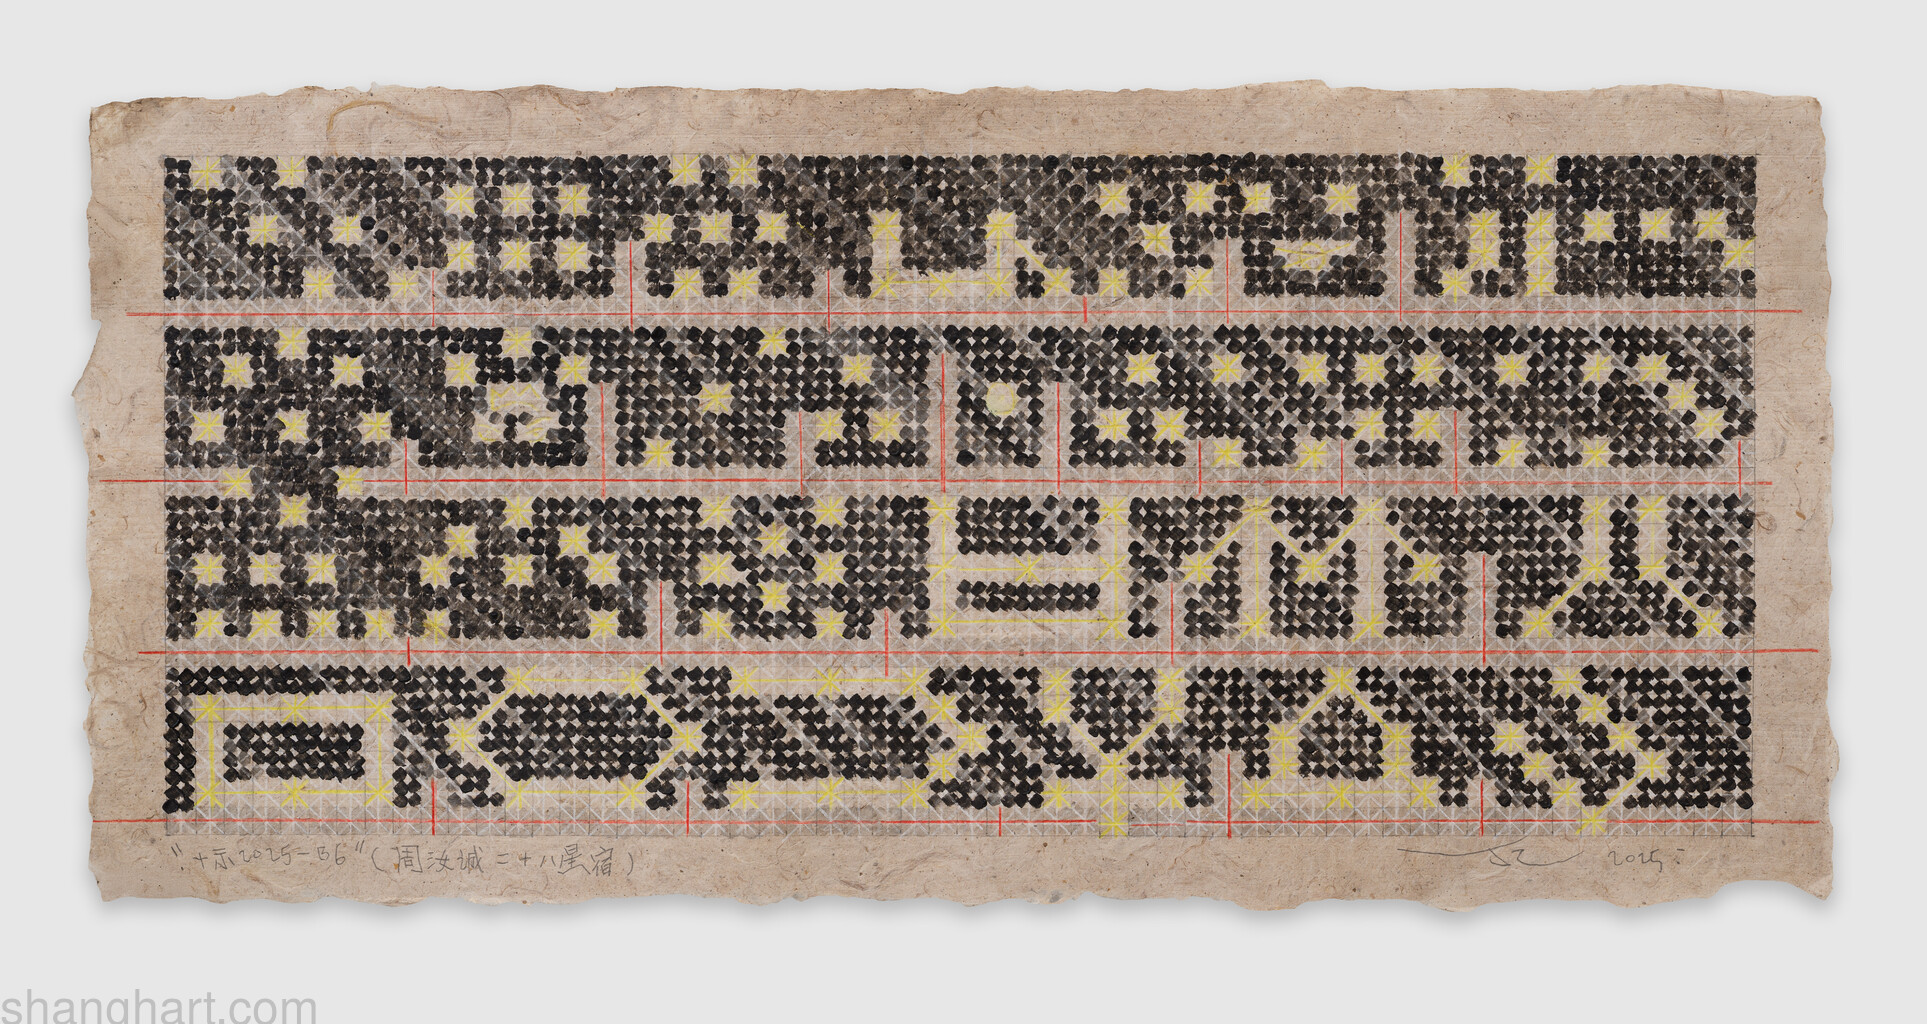 "十示2025-B6"(周汝诚二十八星宿)
2025.
shanghart.com